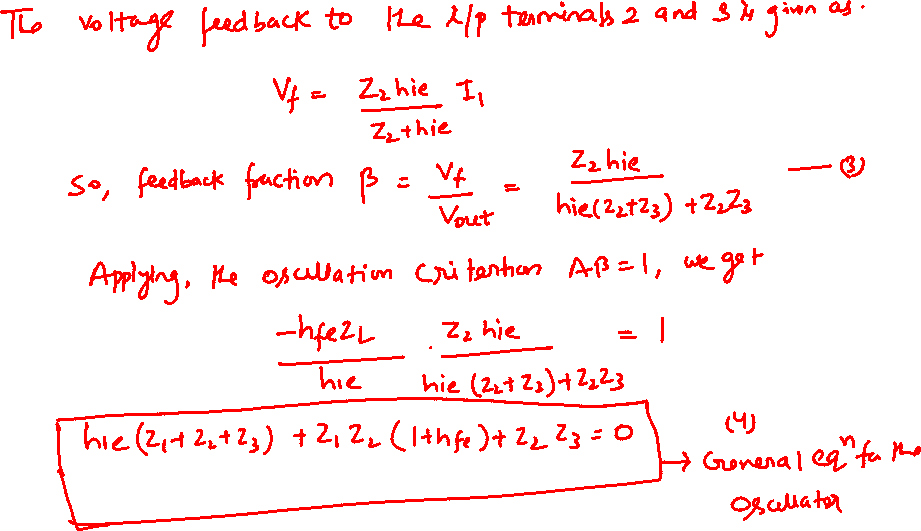 The voltage feedback to the i/p terminals 2 and 3 is given as.
Vf = Z₂ hie / Z₂ + hie I₁
So, feedback fraction β = Vf / Vout = Z₂ hie / hie(Z₂+Z₃) + Z₂Z₃ — (3)
Applying, the oscillation criterion Aβ = 1, we get
-hfe ZL / hie . Z₂ hie / hie (Z₂+Z₃) + Z₂Z₃ = 1
hie (Z₁ + Z₂ + Z₃) + Z₁ Z₂ (1+hfe) + Z₂ Z₃ = 0
(4)
→ General eqⁿ for the
Oscillator